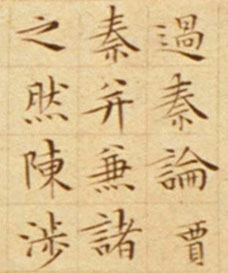 過秦論賈
秦并兼諸
之然陳涉